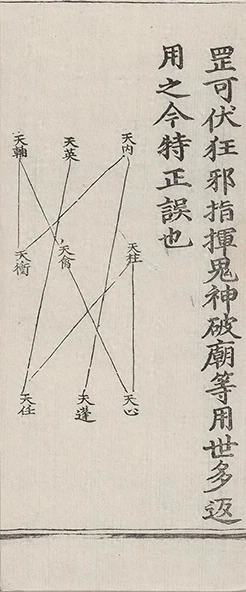 罡可伏狂邪指揮鬼神破廟等用世多返
用之今特正誤也
天內
天英
天輔
天柱
天禽
天衝
天心
天蓬
天任